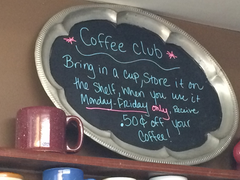 Coffee club
Bring in a cup, Store it on
the Shelf, When you use it
Monday-Friday only, Receive
.50¢ off your
Coffee!